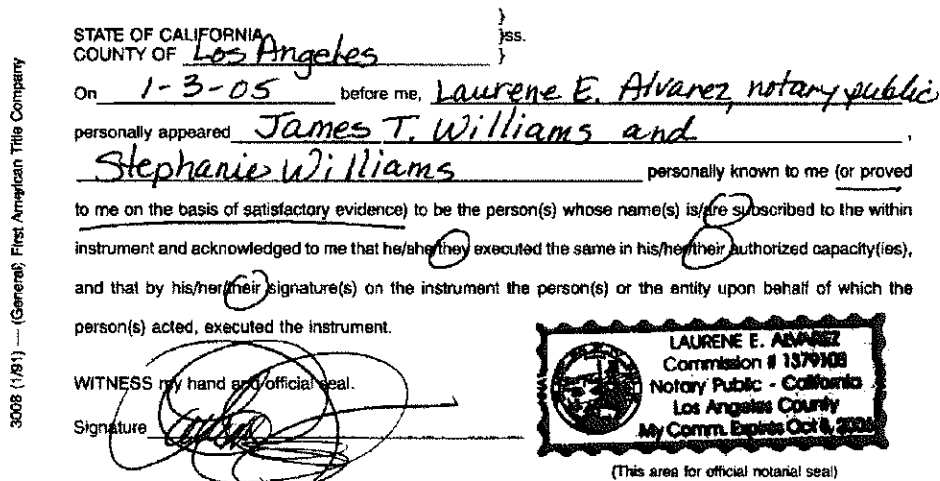 3008 (1/91) — (General) First American Title Company
STATE OF CALIFORNIA }
}ss.
COUNTY OF Los Angeles }
On 1-3-05 before me, Laurene E. Alvarez, notary public
personally appeared James T. Williams and ,
Stephanie Williams personally known to me (or proved
to me on the basis of satisfactory evidence) to be the person(s) whose name(s) is/are subscribed to the within
instrument and acknowledged to me that he/she/they executed the same in his/her/their authorized capacity(ies),
and that by his/her/their signature(s) on the instrument the person(s) or the entity upon behalf of which the
person(s) acted, executed the instrument.
WITNESS my hand and official seal.
Signature
LAURENE E. ALVAREZ
Commission # 1379108
Notary Public - California
Los Angeles County
My Comm. Expires Oct
(This area for official notarial seal)